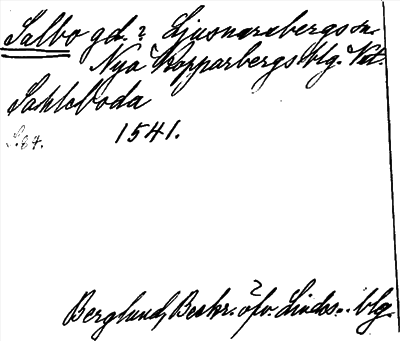 Salbo gd. ? Ljusnarsbergs sn.
Nya Kopparbergs blg. Vstm.
Sahleboda
1541.
Berglund, Beskr. öfv. Lindes.. blg.